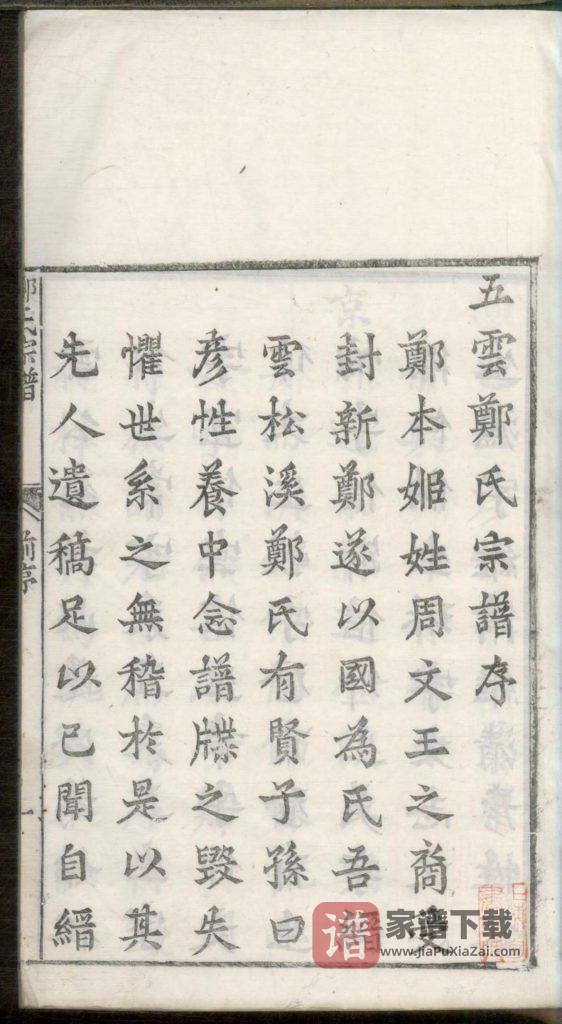 五雲鄭氏宗譜序
鄭本姬姓周文王之裔
封新鄭遂以國為氏吾
雲松溪鄭氏有賢子孫曰
彦性養中念譜牒之毀失
懼世系之無稽於是以其
先人遺稿足以已聞自縉
氏宗譜
前序
一
谱
家谱下载
www.JiaPuXiaZai.com